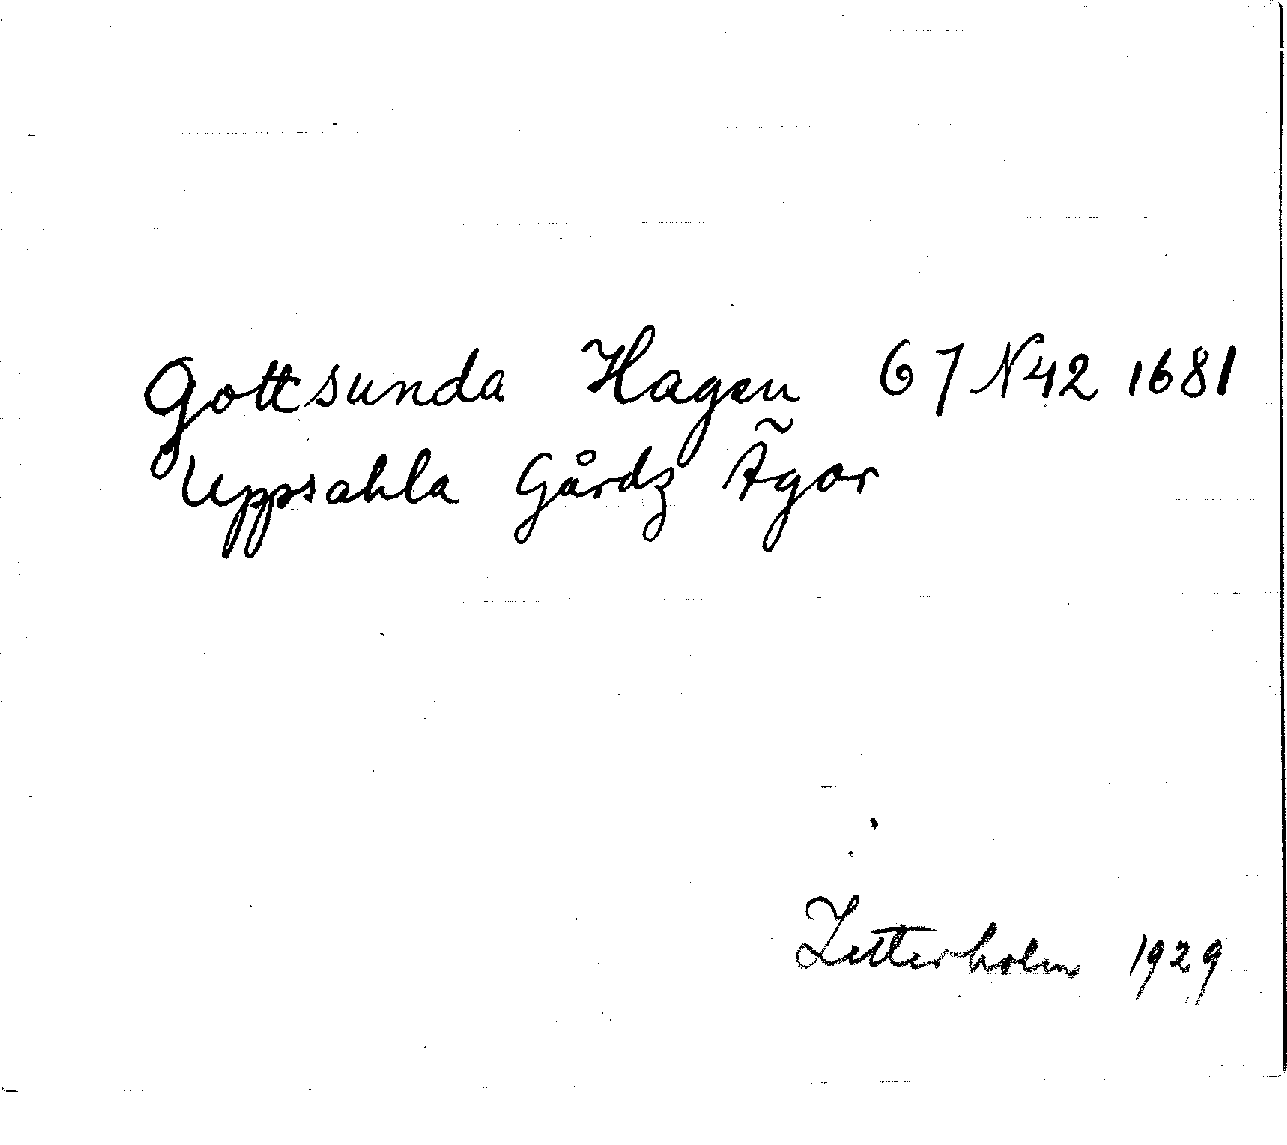 Gottsunda Hagen G7 N42 1681
Uppsahla Gårdz Ägor
Zetterholm 1929